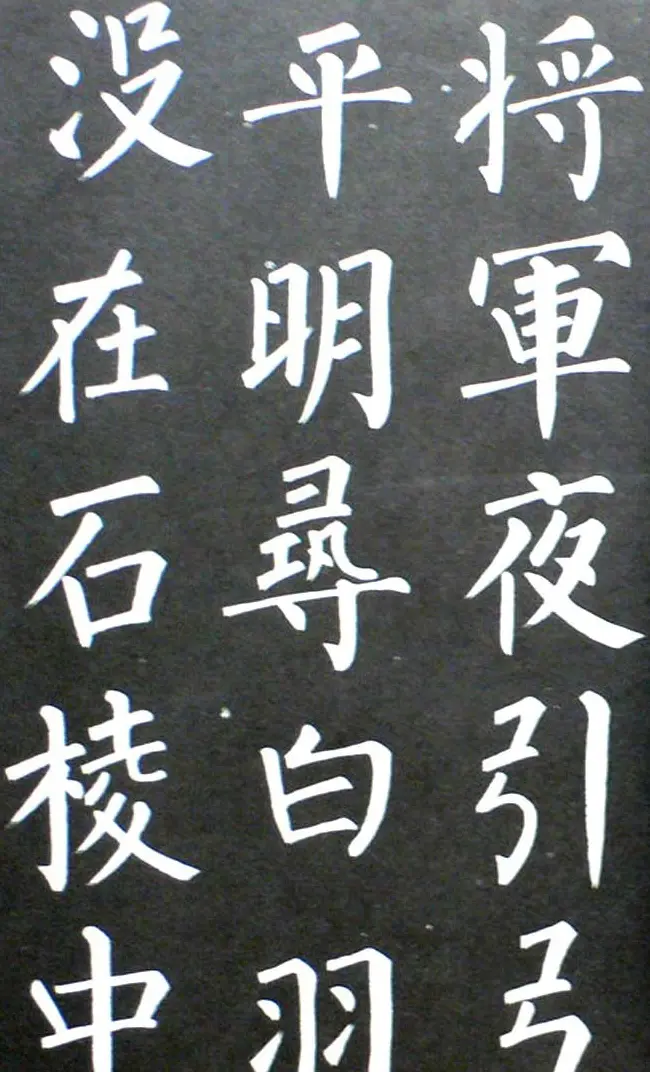 将軍夜引弓
平明尋白羽
没在石棱中